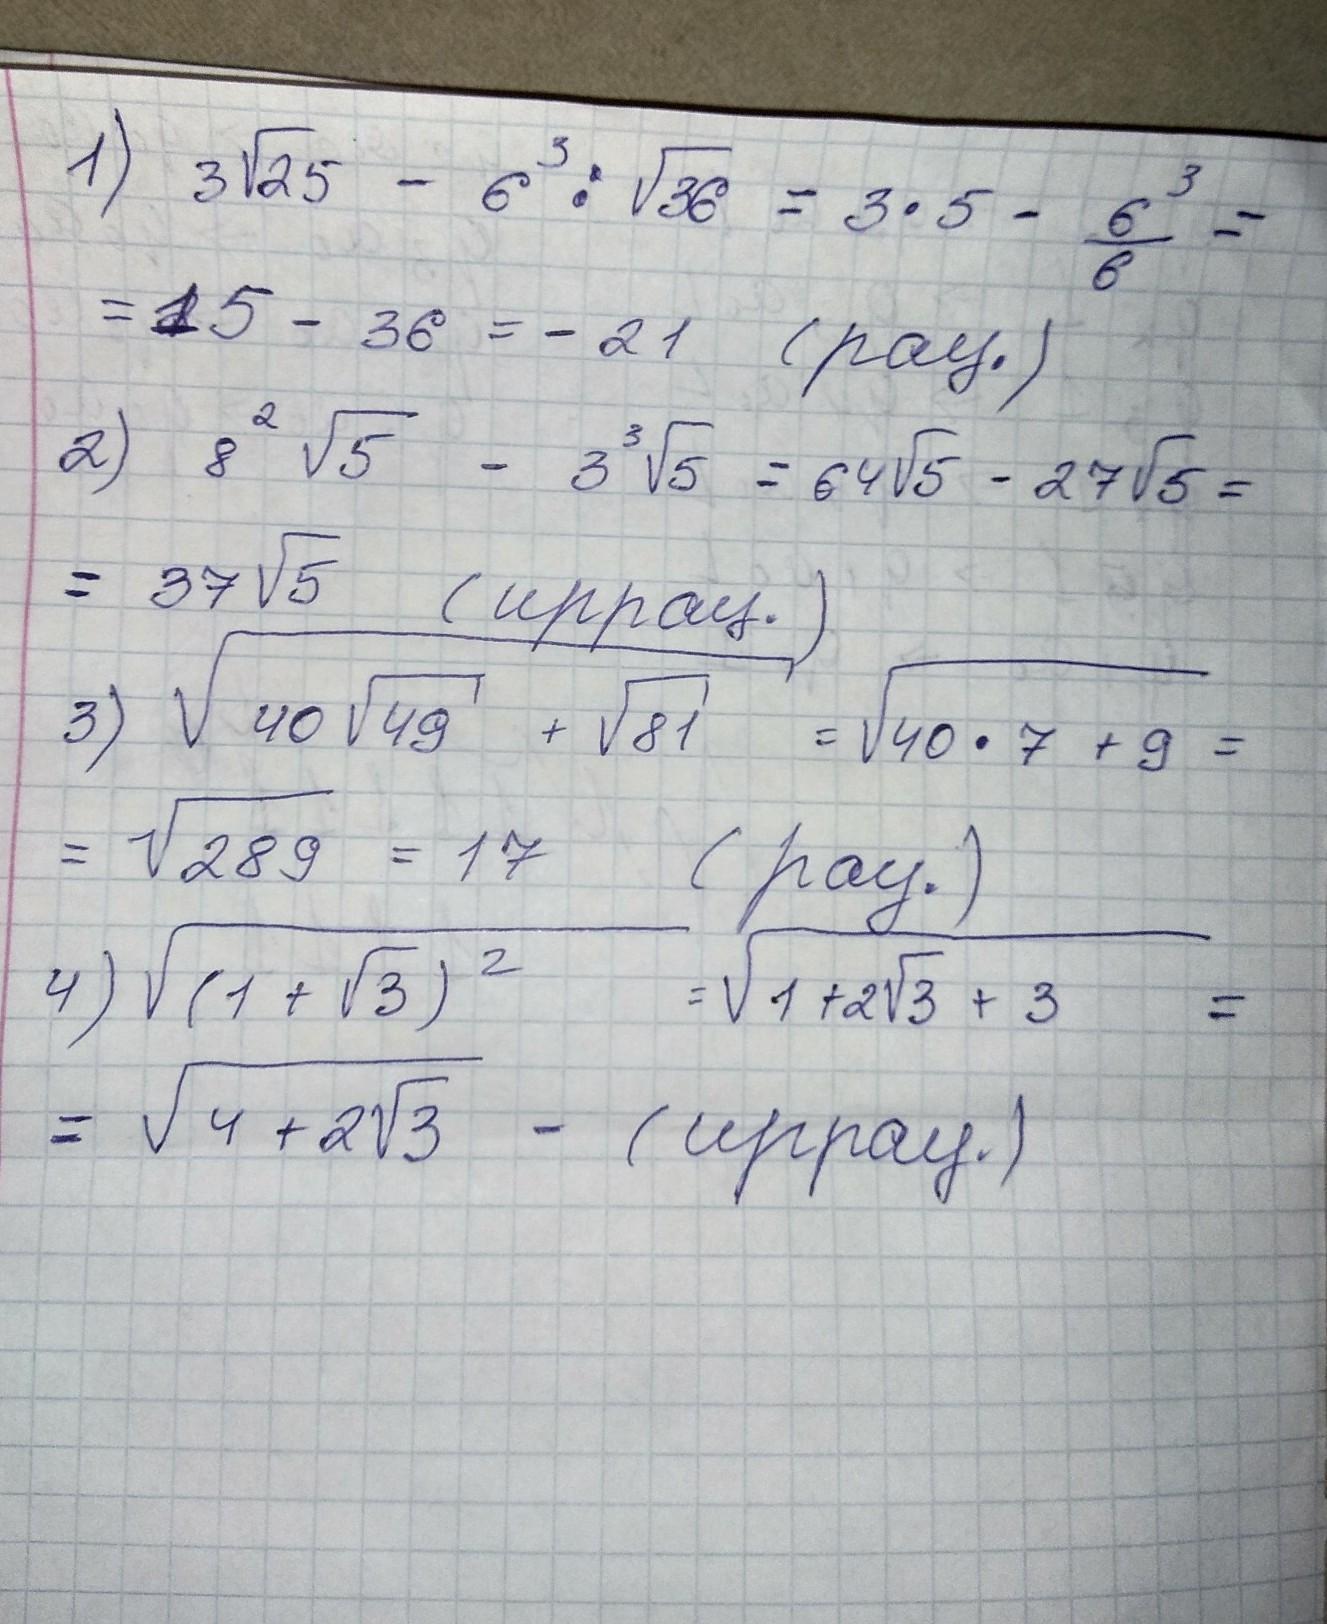 1) 3√25 - 6³ : √36 = 3·5 - 6³/6 =
= 15 - 36 = - 21 (рац.)
2) 8² √5 - 3³√5 = 64√5 - 27√5 =
= 37√5 (иррац.)
3) √(40√49 + √81) = √(40·7 + 9) =
= √289 = 17 (рац.)
4) √((1 + √3)²) = √(1 + 2√3 + 3) =
= √(4 + 2√3) - (иррац.)